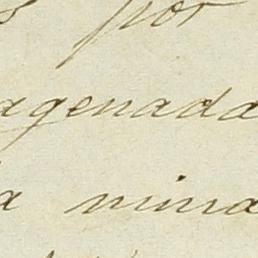 por
agenada
a nina